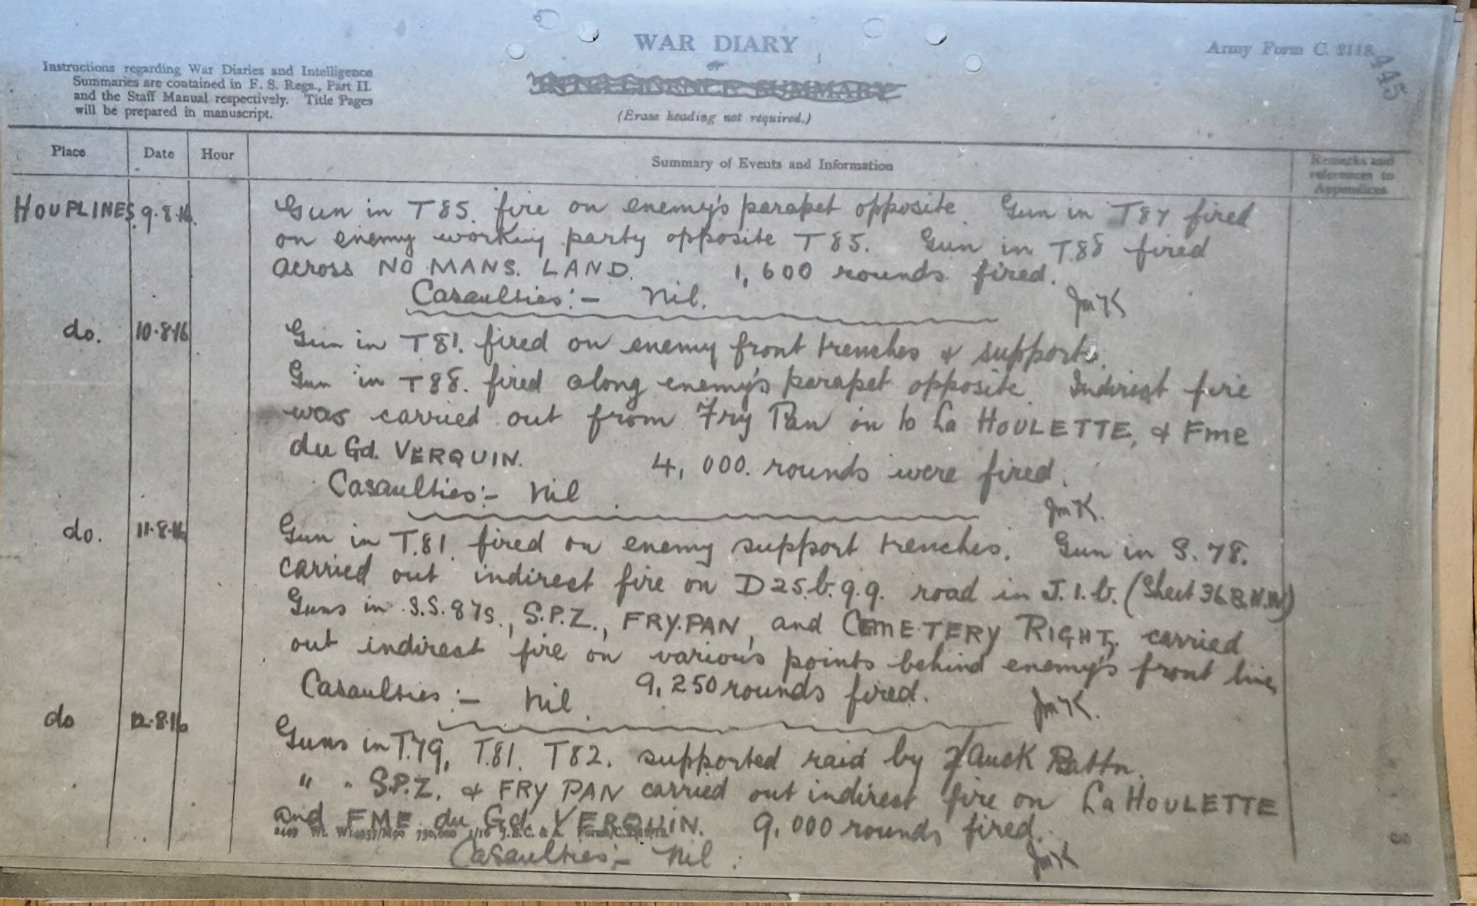 WAR DIARY
or
INTELLIGENCE SUMMARY
(Erase heading not required.)
Army Form C. 2118
445
Instructions regarding War Diaries and Intelligence
Summaries are contained in F. S. Regs., Part II.
and the Staff Manual respectively. Title Pages
will be prepared in manuscript.
Place Date Hour Summary of Events and Information Remarks and references to Appendices
HOUPLINES 9.8.16 Gun in T85. fire on enemy's parapet opposite. Gun in T87 fired
on enemy working party opposite T85. Gun in T.88 fired
across NO MANS. LAND. 1,600 rounds fired.
Casaulties:- nil. JmK
do. 10.8.16 Gun in T81. fired on enemy front trenches & supports.
Gun in T88. fired along enemy's parapet opposite. Indirect fire
was carried out from Fry Pan on to La HOULETTE, & Fme
du Gd. VERQUIN. 4,000. rounds were fired.
Casaulties:- nil JmK.
do. 11.8.16 Gun in T.81. fired on enemy support trenches. Gun in S.78.
carried out indirect fire on D25.b.9.9. road in J.1.b. (Sheet 36 N.W)
Guns in S.S.87s., S.P.Z., FRY.PAN, and CEMETERY RIGHT, carried
out indirect fire on various points behind enemy's front line,
Casaulties:- nil. 9,250 rounds fired. JmK.
do 12.8.16 Guns in T.79, T.81. T82. supported raid by Auck Battn.
" " S.P.Z. & FRY PAN carried out indirect fire on La HOULETTE
and FME. du Gd. VERQUIN. 9,000 rounds fired.
Casaulties:- nil. JmK